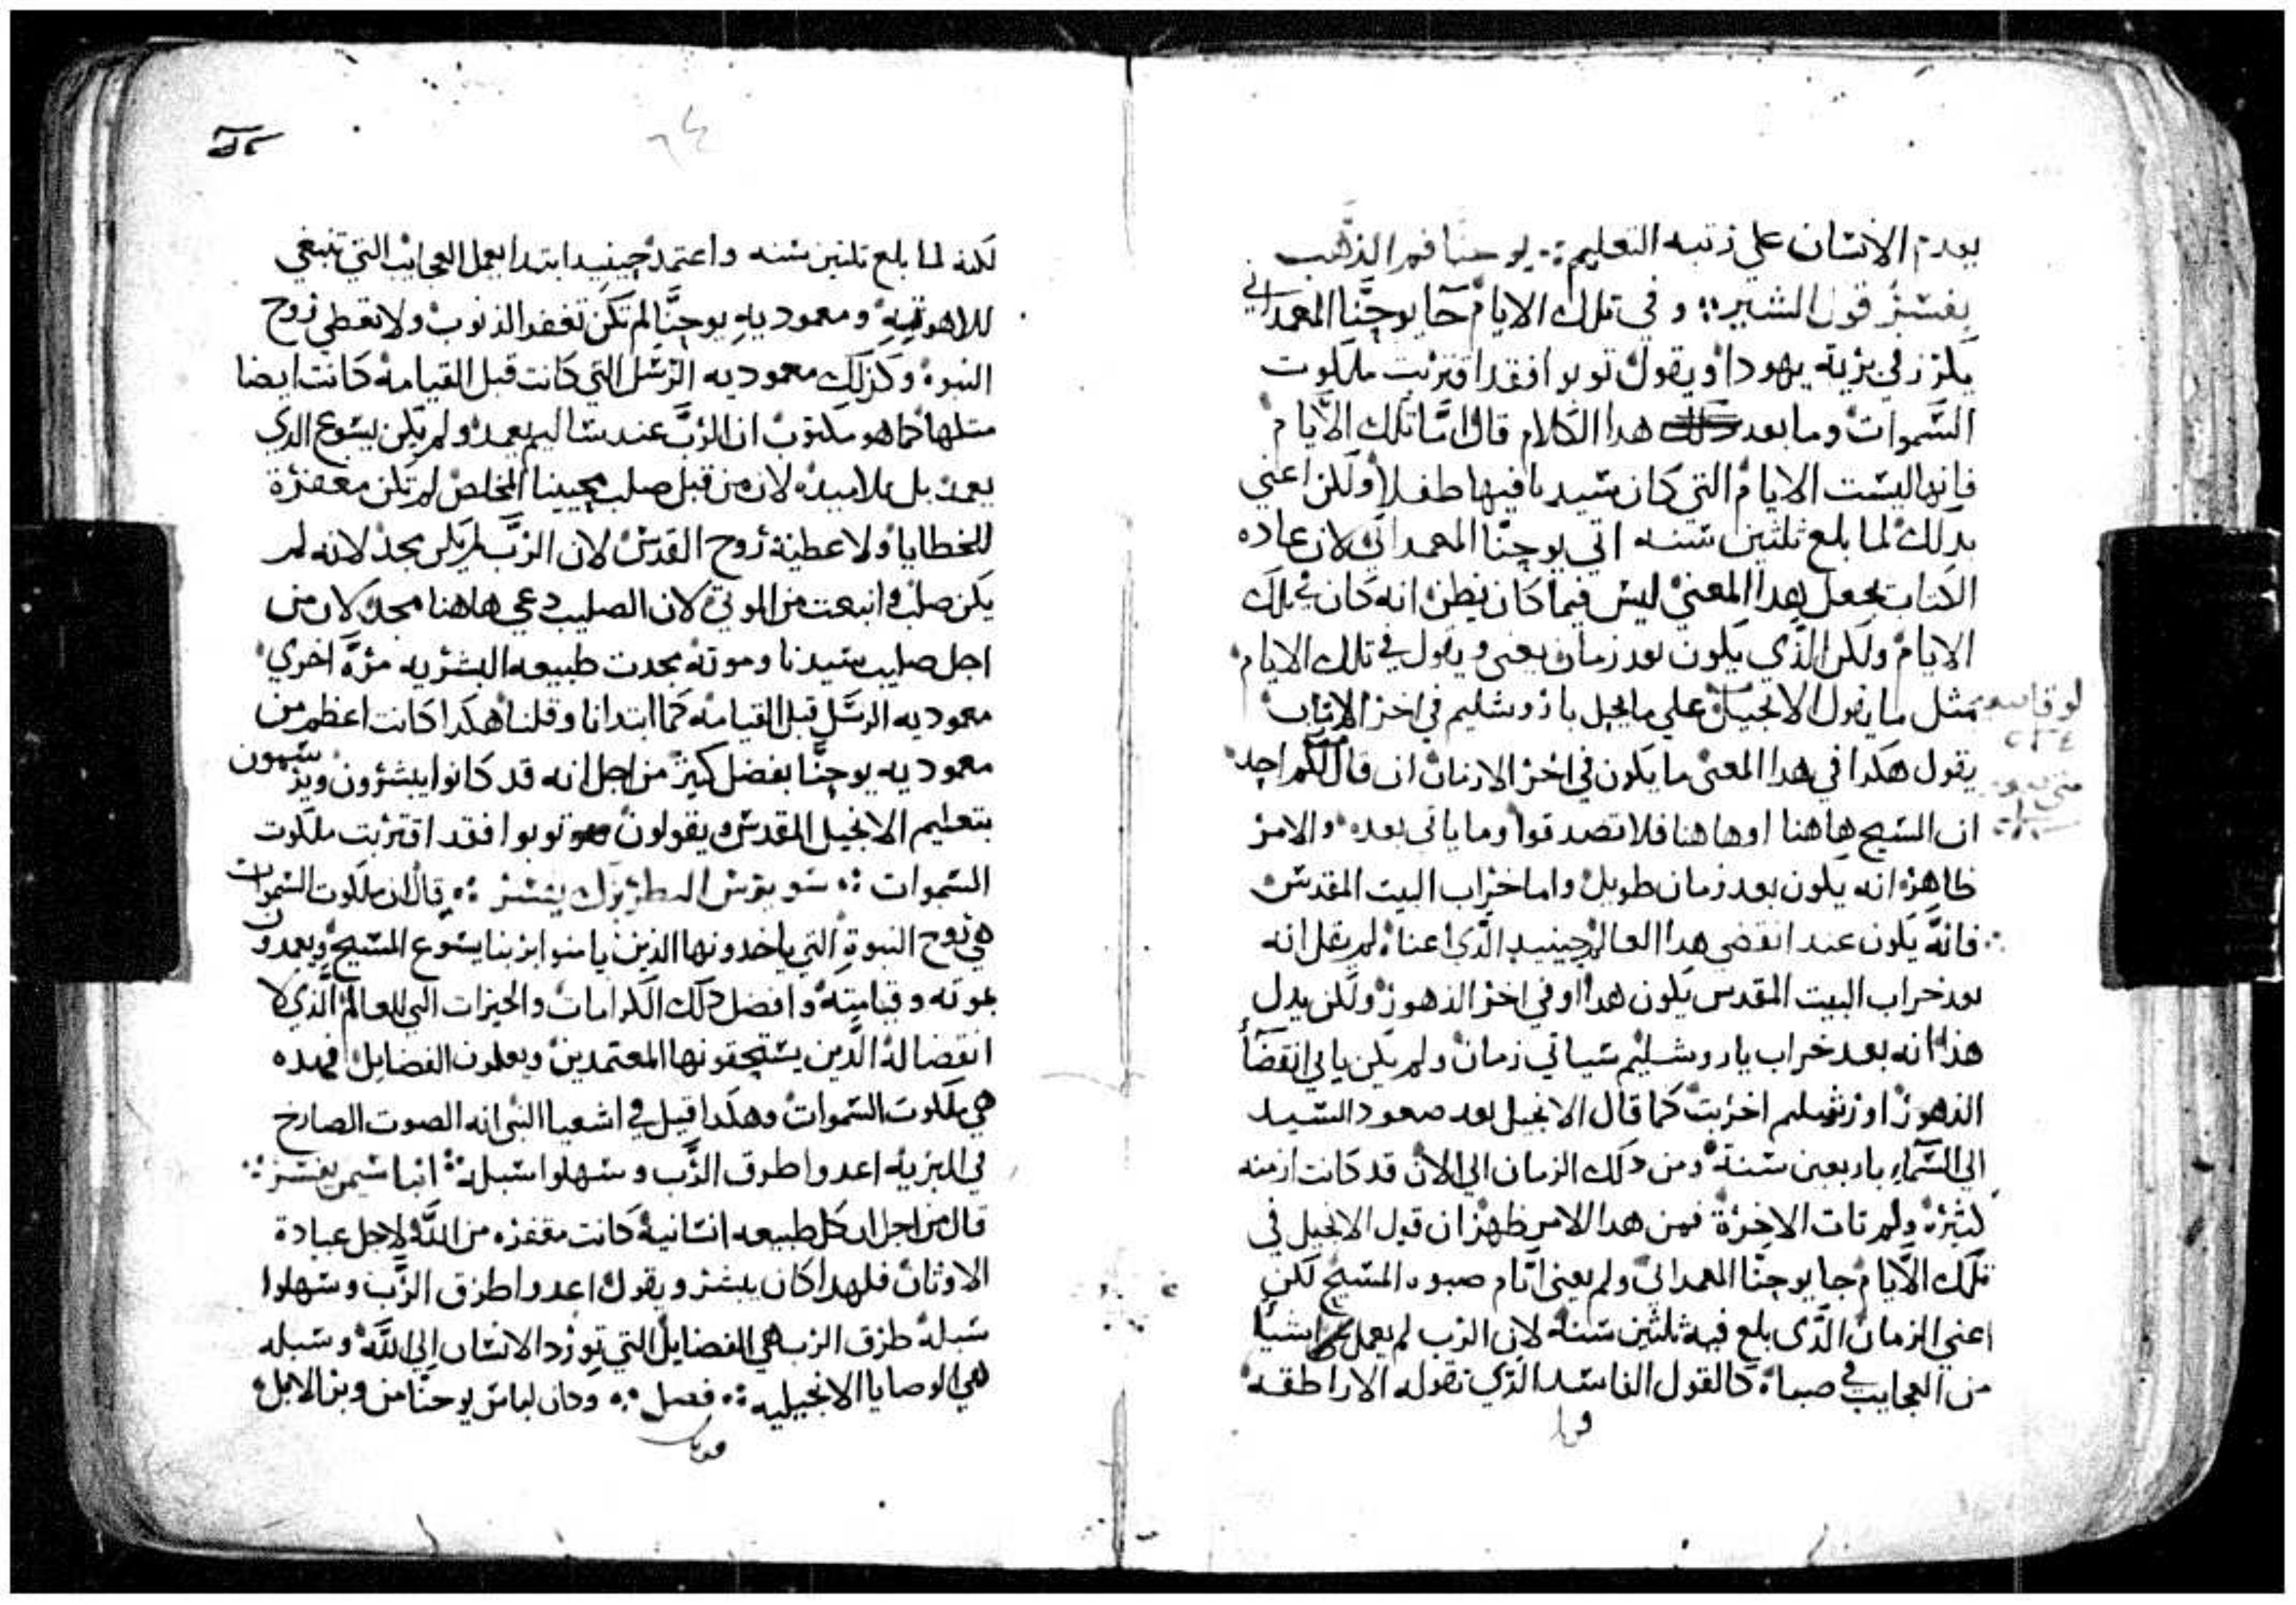 يعدم الانسان على رتبه التعليم ∴ يوحنا فم الذهب
يفسر قول البشير ∴ وفي تلك الايام جا يوحنا المعمداني
يكرز في برية يهودا ويقول توبوا فقد اقتربت ملكوت
السموات وما بعد هدا الكلام قال اما تلك الايام
فانها ليست الايام التي كان سيدنا فيها طفلا ولكن اعني
بدلك لما بلغ ثلثين سنه اتي يوحنا المعمداني لان عاده
الكتاب يجعل هدا المعنى ليس فيما كان يظن انه كان في تلك
الايام ولكن الذي يكون بعد زمان يعني ويقول في تلك الايام
مثل ما يقول الانجيل علي ما يحل باروشليم في اخر الازمان
يقول هكدا في هدا المعنى ما يكون في اخر الازمان ان قال لكم احد
ان المسيح هاهنا اوهاهنا فلا تصدقوا وما ياتى بعده والامر
ظاهر انه يكون بعد زمان طويل واما خراب البيت المقدس
فانه يكون عند انقضى هدا العالم حينيد الذي اعناه لم يقل انه
بعد خراب البيت المقدس يكون هدا او في اخر الدهور ولكن يدل
هدا انه بعد خراب ياروشليم سياتي زمان ولم يكن ياتي انقضآ
الدهور اورشليم اخربت كما قال الانجيل بعد صعود السيد
الي السمآء باربعين سنة ومن دلك الزمان الي الان قد كانت ازمنه
كثيرة ولم تات الاخرة فمن هدا الامر ظهر ان قول الانجيل في
تلك الايام جا يوحنا المعمداني ولم يعني ايام صبوه المسيح لكن
اعني الزمان الذي بلغ فيه ثلثين سنه لان الرب لم يعمل شيا
من العجايب في صباه كالقول الفاسد الذي تقوله الاراطقه
لكنه لما بلغ تلتين سنه واعتمد حينيد ابتدا يعمل العجايب التي تنبغي
للاهوتيه ومعموديه يوحنا لم تكن تغفر الذنوب ولا تعطي روح
النبوه وكذلك معموديه الرسل التي كانت قبل القيامه كانت ايضا
مثلها كما هو مكتوب ان الرب عند ساليم يعمد ولم يكن يسوع الدي
يعمد بل تلاميده لان من قبل صلب محيينا المخلص لم تكن مغفرة
للخطايا ولا عطية روح القدس لان الرب لم يكن مجد لانه لم
يكن صلب وانبعت من الموتى لان الصليب دعي هاهنا مجد لان من
اجل صليب سيدنا وموته تجددت طبيعه البشريه مرة اخري
معموديه الرسل قبل القيامه كما ابتدانا وقلنا هكدا كانت اعظم من
معموديه يوحنا بفضل كبير من اجل انه قد كانوا يبشرون ويرسمون
بتعليم الانجيل المقدس ويقولون توبوا فقد اقتربت ملكوت
السموات ∴ سويرس البطريرك يفسر ∴ قال ان ملكوت السموات
هي روح النبوة التي ياخدونها الذين يامنوا بربنا يسوع المسيح ويعمدون
بموته وقيامته وافضل دلك الكرامات والخيرات التي للعالم الذي لا
انقضا له الذين يستحقونها المعتمدين ويعملون الفضايل فهده
هي ملكوت السموات وهكدا قيل في اشعيا النبي انه الصوت الصارخ
في البريه اعدوا طرق الرب وسهلوا سبله ∴ انبا سيمن يفسر ∴
قال من اجل ان كل طبيعه انسانية كانت مقفره من الله لاجل عبادة
الاوثان فلهدا كان يبشر ويقول اعدوا طرق الرب وسهلوا
سبله طرق الرب هي الفضايل التي تورد الانسان الي الله وسبله
هي الوصايا الانجيليه ∴ فصل ∴ وكان لباس يوحنا من وبر الابل